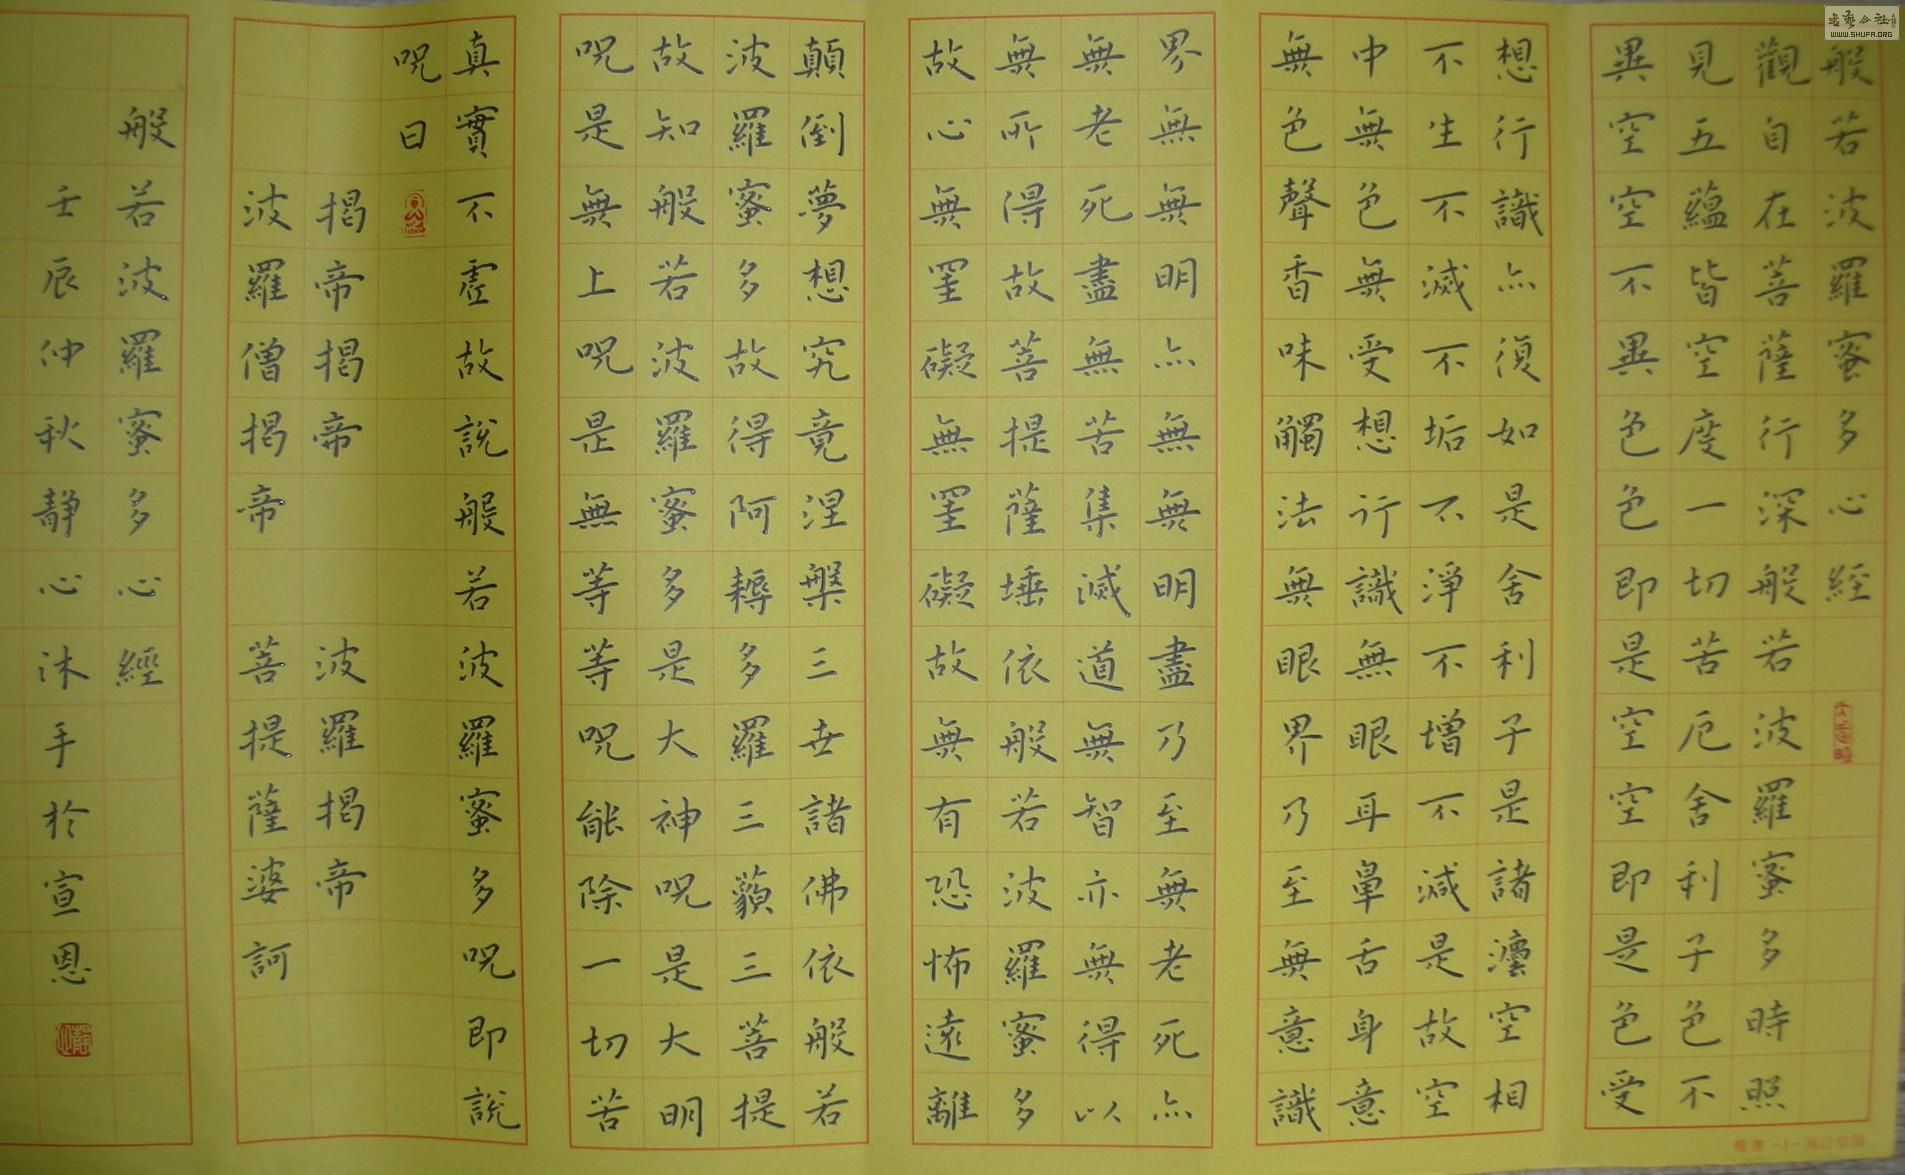 般若波羅蜜多心経
觀自在菩薩行深般若波羅蜜多時照
見五蘊皆空度一切苦厄舍利子色不
異空空不異色色即是空空即是色受
想行識亦復如是舍利子是諸灋空相
不生不滅不垢不淨不增不減是故空
中無色無受想行識無眼耳鼻舌身意
無色聲香味觸法無眼界乃至無意識
界無無明亦無無明盡乃至無老死亦
無老死盡無苦集滅道無智亦無得以
無所得故菩提薩埵依般若波羅蜜多
故心無罣礙無罣礙故無有恐怖遠離
顛倒夢想究竟涅槃三世諸佛依般若
波羅蜜多故得阿耨多羅三藐三菩提
故知般若波羅蜜多是大神呪是大明
呪是無上呪是無等等呪能除一切苦
真實不虛故說般若波羅蜜多呪即說
呪曰
揭帝揭帝 波羅揭帝
波羅僧揭帝 菩提薩婆訶
般若波羅蜜多心經
壬辰仲秋静心沐手於宣恩
WWW.SHUFA.ORG